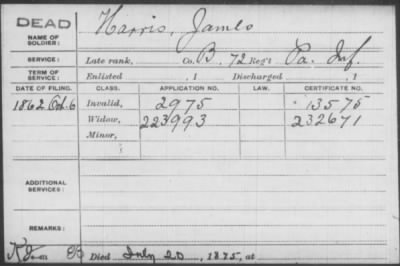 DEAD
NAME OF SOLDIER: Harris, James
SERVICE: Late rank, Co. B, 72 Reg't Pa. Inf.
TERM OF SERVICE: Enlisted , 1 Discharged , 1
DATE OF FILING. CLASS. APPLICATION NO. LAW. CERTIFICATE NO.
1862 Oct. 6 Invalid, 2975 13575
Widow, 223993 232671
Minor,
ADDITIONAL SERVICES:
REMARKS:
Died July 20, 1875, at